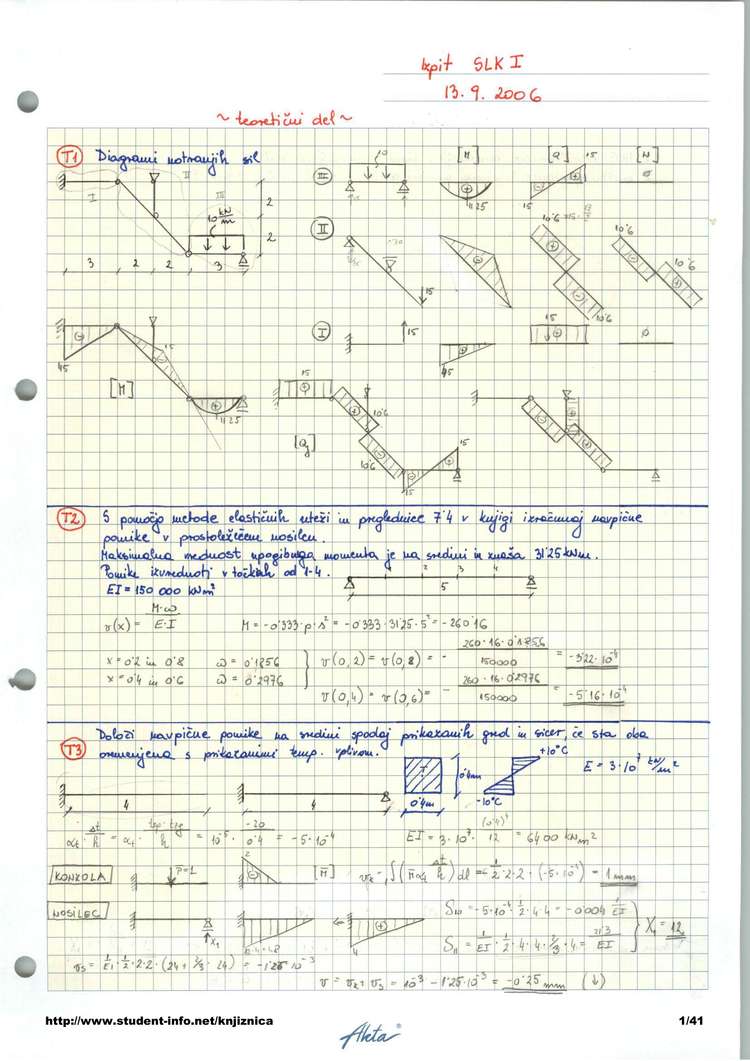 Izpit SLK I
13. 9. 2006
~ teoretični del ~
T1 Diagrami notranjih sil
I
II
III
10 kN/m
2
2
3 2 2 3
III 10 [M] [Q] 15 [N]
11'25 15
II 10'6 10'6
15 10'6 10'6
I 15 15
45
45 15
[M] 11'25
15
10'6
[Q]
10'6 15
15
T2 S pomočjo metode elastičnih uteži in preglednice 7'4 v knjigi izračunaj navpične
pomike v prostoležečem nosilcu.
Maksimalna vrednost upogibnega momenta je na sredini in znaša 31'25 kNm.
Pomike izvrednoti v točkah od 1-4.
EI = 150 000 kNm²
2 3 4
5
v(x) = M·ω / E·I M = -0'333·p·s² = -0'333·31'25·5² = -260'16
x = 0'2 in 0'8 ω = 0'1856
x = 0'4 in 0'6 ω = 0'2976
v(0,2) = v(0,8) = - 260·16·0'1856 / 150000 = -3'22·10⁻⁴
v(0,4) = v(0,6) = - 260·16·0'2976 / 150000 = -5'16·10⁻⁴
T3 Določi navpične pomike na sredini spodaj prikazanih gred in sicer, če sta oba
obremenjena s prikazanimi temp. vplivom.
+10°C
-10°C
0'4m
0'4m
E = 3·10⁷ kN/m²
4 4
αt Δt/h = αt · tsp - tzg / h = 10⁻⁵ · -20 / 0'4 = -5·10⁻⁴
EI = 3·10⁷ · (0'4)⁴ / 12 = 6400 kNm²
KONZOLA P=1 2 [M]
= ½·2·2·(-5·10⁻⁴) = 1 mm
NOSILEC X₁ 4
= -5·10⁻⁴·½·4·4 = -0'004
= 1/EI · ½·4·4·⅔·4 = 21'3 / EI
X₁ = 12
= -1'25·10⁻³
= 10⁻³ - 1'25·10⁻³ = -0'25 mm (↓)
http://www.student-info.net/knjiznica
1/41
Akta